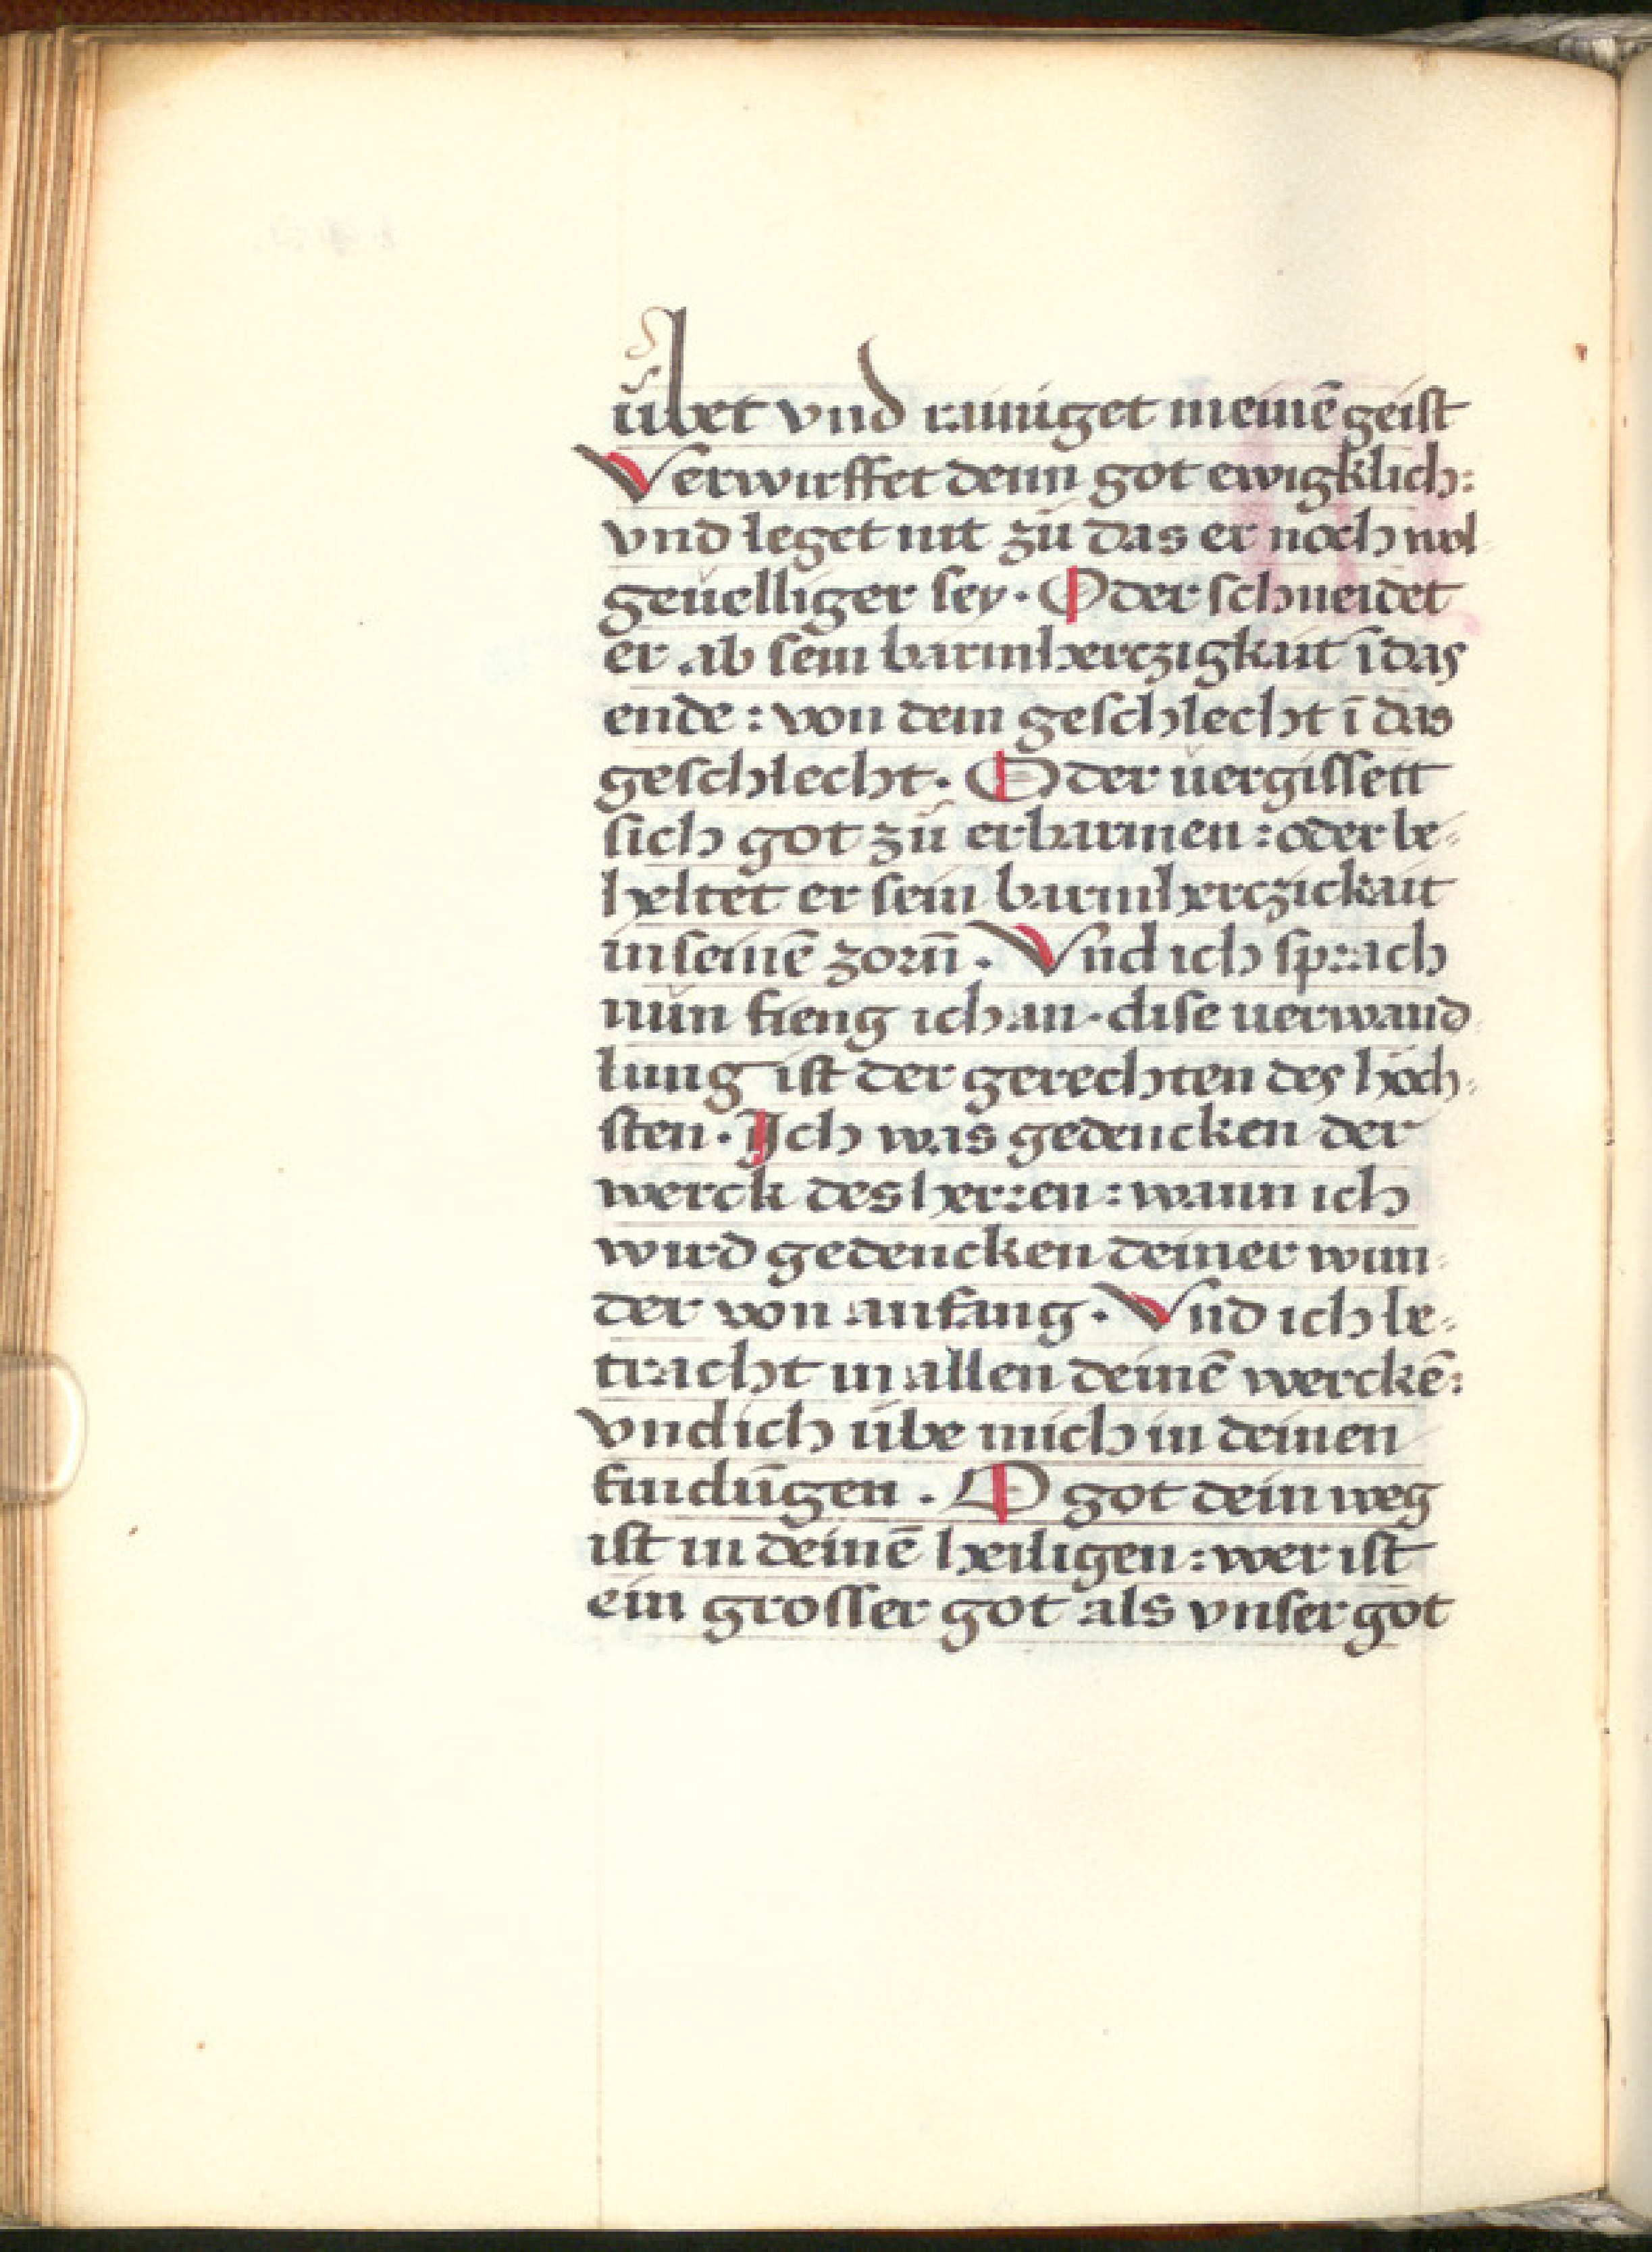 übet vnd rainiget meinē geist
Verwirffet denn got ewigklich:
vnd leget nit zů das er noch wol
geüelliger sey. Oder schneidet
er ab sein barmherczigkait ī das
ende: von dem geschlecht ī das
geschlecht. Oder üergissett
sich got zů erbarmen: oder be-
heltet er sein barmherczickait
in seinē zorn̄. Vnd ich sprach
nŭn fieng ich an. dise uerwand
lung ist der gerechten des höch-
sten. Ich was gedencken der
werck des herren: wann ich
wird gedencken deiner wun-
der von anfang. Vnd ich be-
tracht in allen deinē werckē:
vnd ich übe mich in deinen
findūgen. O got dein weg
ist in deinē heiligen: wer ist
ein grosser got als vnser got